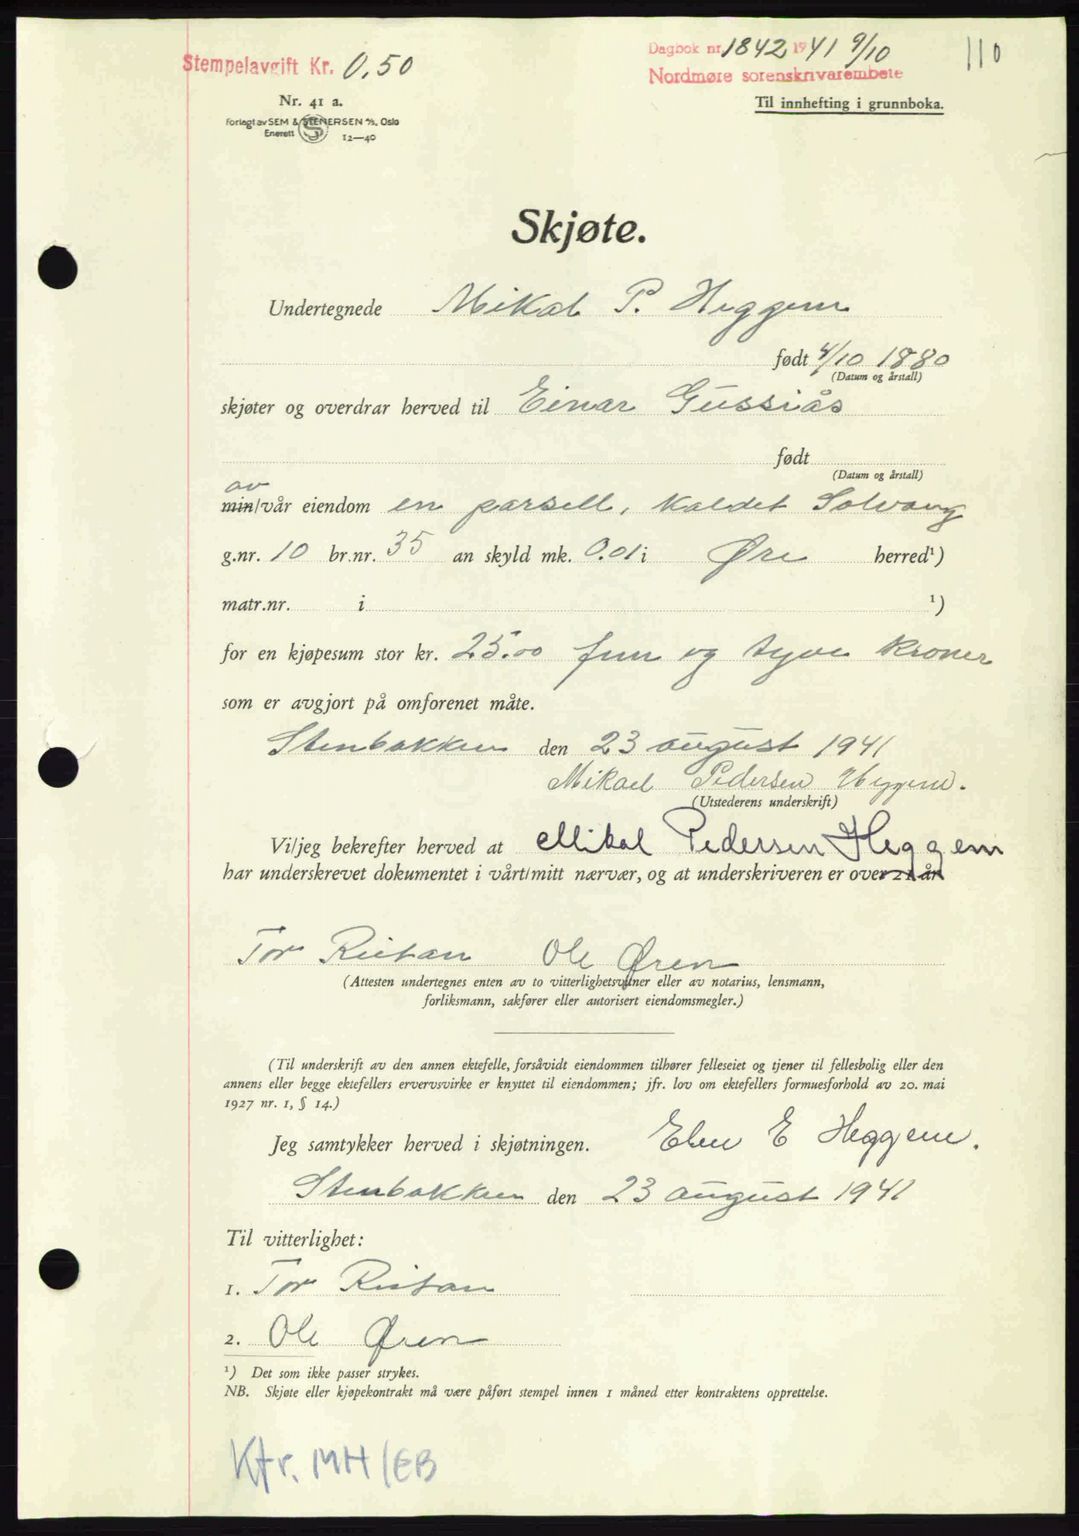 Stempelavgift Kr. 0,50
Dagbok nr. 1842 1941 9/10
110
Nordmøre sorenskrivarembete
Nr. 41 a.
Til innhefting i grunnboka.
Forlagt av SEM & STENERSEN A/S, Oslo
Enerett S 12—40
Skjøte.
Undertegnede Mikal P. Heggem
født 4/10 1880
(Datum og årstall)
skjøter og overdrar herved til Einar Gussiås
født
(Datum og årstall)
av
min/vår eiendom en parsell, kaldet Solvang
g.nr. 10 br.nr. 35 an skyld mk. 0.01 i Øre herred¹)
matr.nr. i ¹)
for en kjøpesum stor kr. 25.00 fem og tyve kroner
som er avgjort på omforenet måte.
Stenbakken den 23 august 1941
Mikael Pedersen Heggem.
(Utstederens underskrift)
Vi/jeg bekrefter herved at Mikal Pedersen Heggem
har underskrevet dokumentet i vårt/mitt nærvær, og at underskriveren er over 21 år
Tor Ristan Ole Øren
(Attesten undertegnes enten av to vitterlighetsvitner eller av notarius, lensmann,
forliksmann, sakfører eller autorisert eiendomsmegler.)
(Til underskrift av den annen ektefelle, forsåvidt eiendommen tilhører felleseiet og tjener til fellesbolig eller den
annens eller begge ektefellers ervervsvirke er knyttet til eiendommen; jfr. lov om ektefellers formuesforhold av 20. mai
1927 nr. 1, § 14.)
Jeg samtykker herved i skjøtningen. E Heggem.
Stenbakken den 23 august 1941
Til vitterlighet:
1. Tor Ristan
2. Ole Øren
¹) Det som ikke passer strykes.
NB. Skjøte eller kjøpekontrakt må være påført stempel innen 1 måned etter kontraktens opprettelse.
Kfr. MH/EB